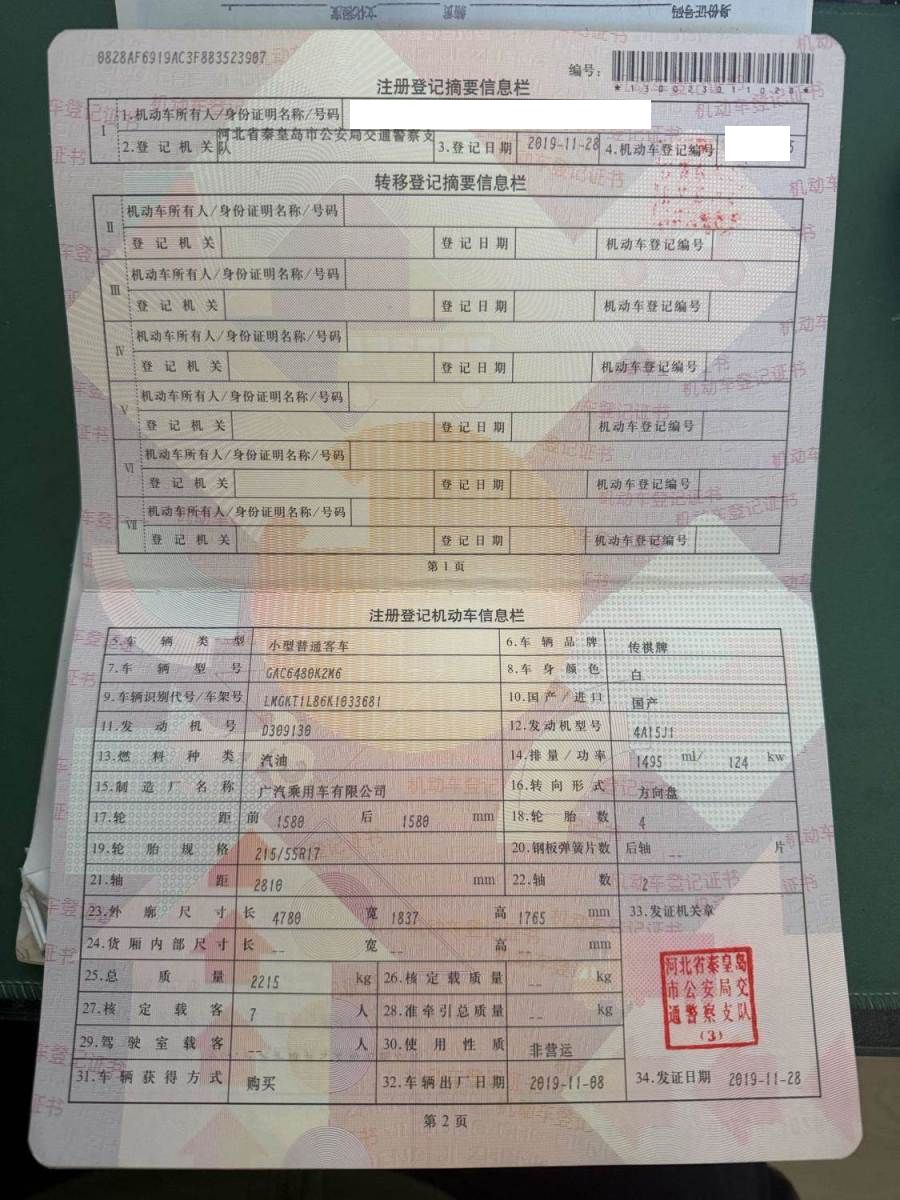 身份证号码 籍贯 文化程度
0828AF6919AC3F883523907
编号：
注册登记摘要信息栏
1 1.机动车所有人/身份证明名称/号码
2.登记机关 河北省秦皇岛市公安局交通警察支队 3.登记日期 2019-11-28 4.机动车登记编号 5
转移登记摘要信息栏
Ⅱ 机动车所有人/身份证明名称/号码
登记机关 登记日期 机动车登记编号
Ⅲ 机动车所有人/身份证明名称/号码
登记机关 登记日期 机动车登记编号
Ⅳ 机动车所有人/身份证明名称/号码
登记机关 登记日期 机动车登记编号
Ⅴ 机动车所有人/身份证明名称/号码
登记机关 登记日期 机动车登记编号
Ⅵ 机动车所有人/身份证明名称/号码
登记机关 登记日期 机动车登记编号
Ⅶ 机动车所有人/身份证明名称/号码
登记机关 登记日期 机动车登记编号
第1页
注册登记机动车信息栏
5.车辆类型 小型普通客车 6.车辆品牌 传祺牌
7.车辆型号 GAC6480K2M6 8.车身颜色 白
9.车辆识别代号/车架号 LMGKT1L86K1033681 10.国产/进口 国产
11.发动机号 D309130 12.发动机型号 4A15J1
13.燃料种类 汽油 14.排量/功率 1495 ml/ 124 kw
15.制造厂名称 广汽乘用车有限公司 16.转向形式 方向盘
17.轮距 前 1580 后 1580 mm 18.轮胎数 4
19.轮胎规格 215/55R17 20.钢板弹簧片数 后轴 -- 片
21.轴距 2810 mm 22.轴数 2
23.外廓尺寸 长 4780 宽 1837 高 1765 mm 33.发证机关章
24.货厢内部尺寸 长 -- 宽 -- 高 -- mm
25.总质量 2215 kg 26.核定载质量 -- kg
27.核定载客 7 人 28.准牵引总质量 -- kg
29.驾驶室载客 -- 人 30.使用性质 非营运
河北省秦皇岛
市公安局交
通警察支队
(3)
31.车辆获得方式 购买 32.车辆出厂日期 2019-11-08 34.发证日期 2019-11-28
第2页